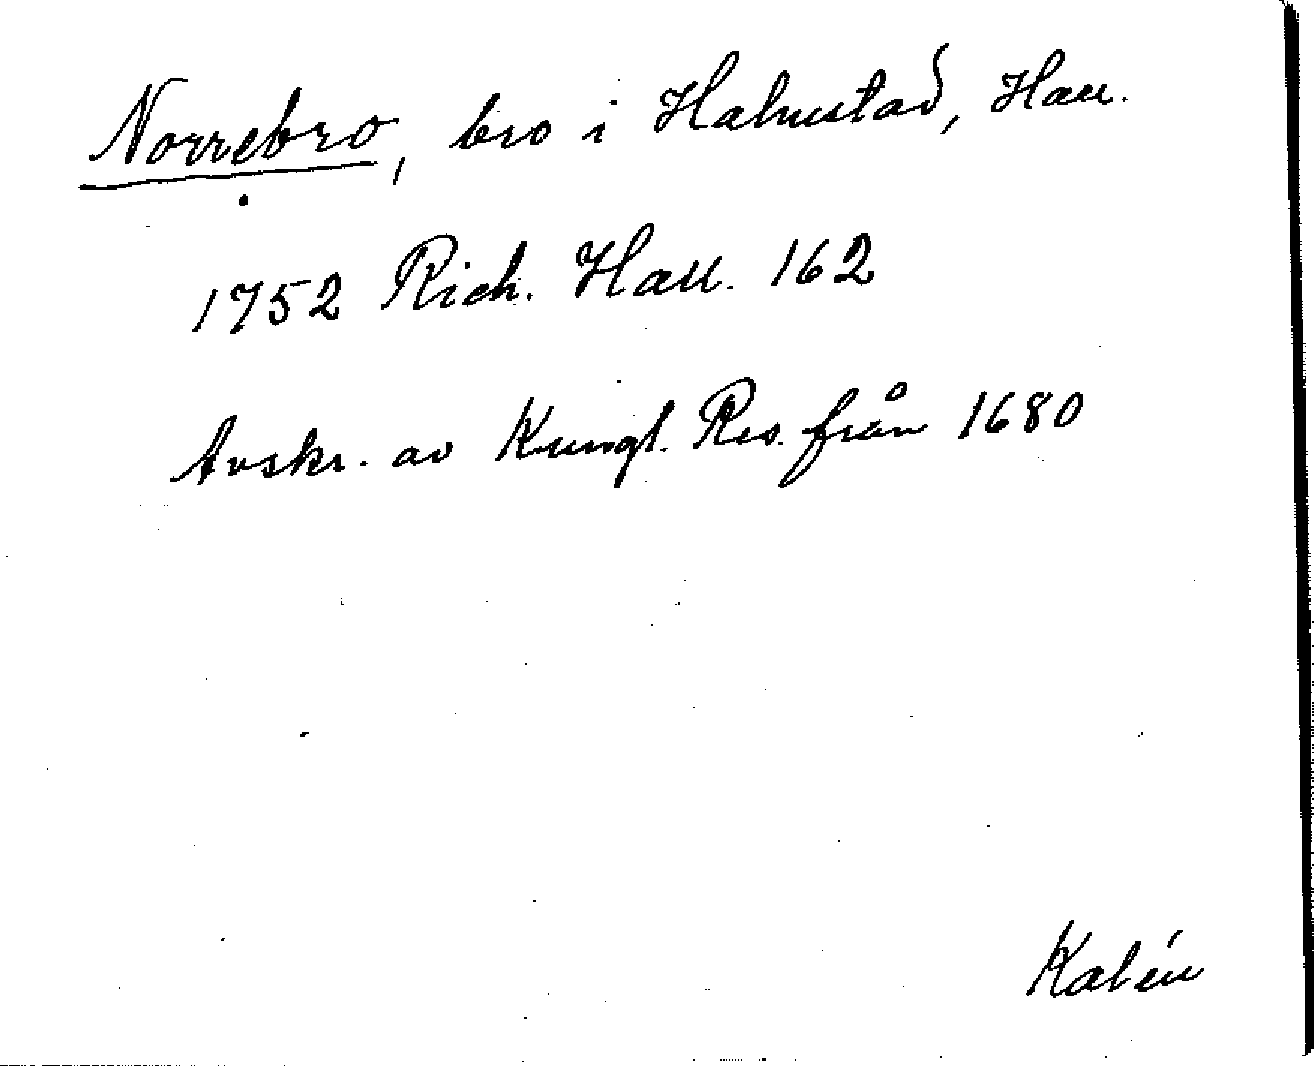 Norrebro, bro i Halmstad, Hall.
1752 Rich. Hall. 162
Avskr. av Kungl. Res. från 1680
Kalén